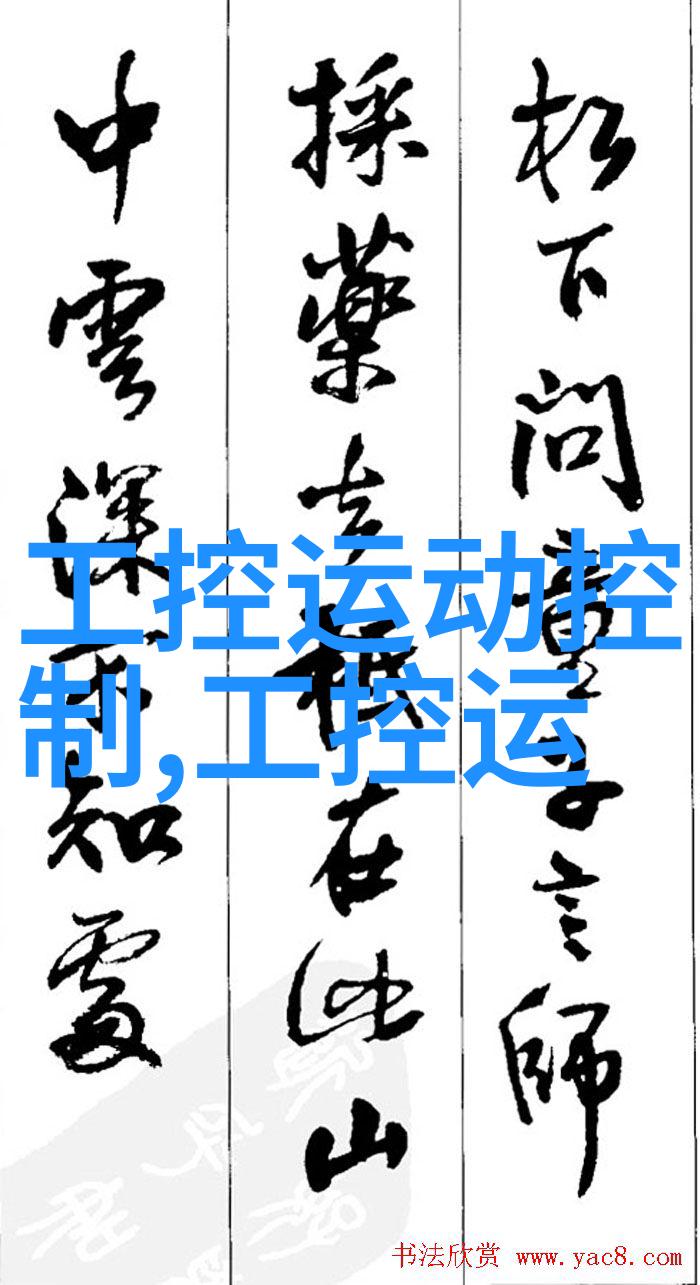 松下问童子言師
採藥去祇在此山
中雲深不知處
工控运动控
制,工控运
书法欣赏 www.yac8.com